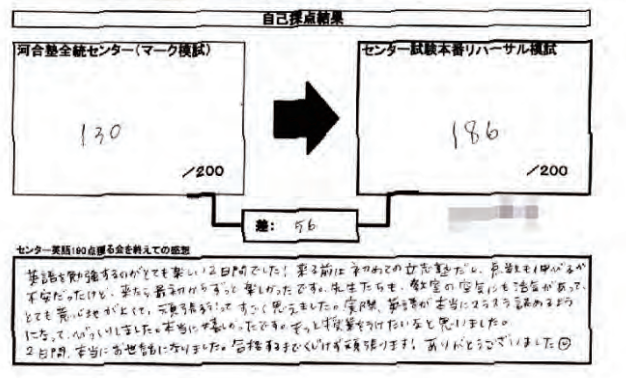 自己採点結果
河合塾全統センター(マーク模試)
センター試験本番リハーサル模試
130
186
/200
/200
差: 56
センター英語190点獲る会を終えての感想
英語を勉強するのがとても楽しい2日間でした! 来る前は初めての立志塾だし、点数も伸びるか
不安だったけど、来たら最初からずっと楽しかったです。先生たちも、教室の空気にも活気があって、
とても居心地がよくて、頑張ろうってすごく思えました。実際、英語が本当にスラスラ読めるよう
になって、びっくりしました。本当に楽しかったです。もっと授業をうけたいなと思いました。
2日間、本当にお世話になりました。合格するまでくじけず頑張ります! ありがとうございました☺